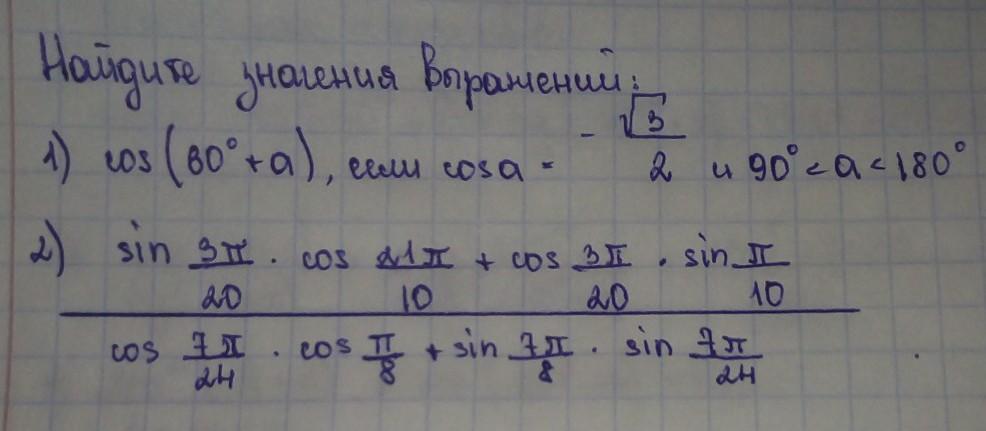 Найдите значения выражений:
1) cos(60°+a), если cos a = -√3/2 и 90°<a<180°
2) sin 3π/20 · cos 21π/10 + cos 3π/20 · sin π/10
cos 7π/24 · cos π/8 + sin 7π/8 · sin 7π/24